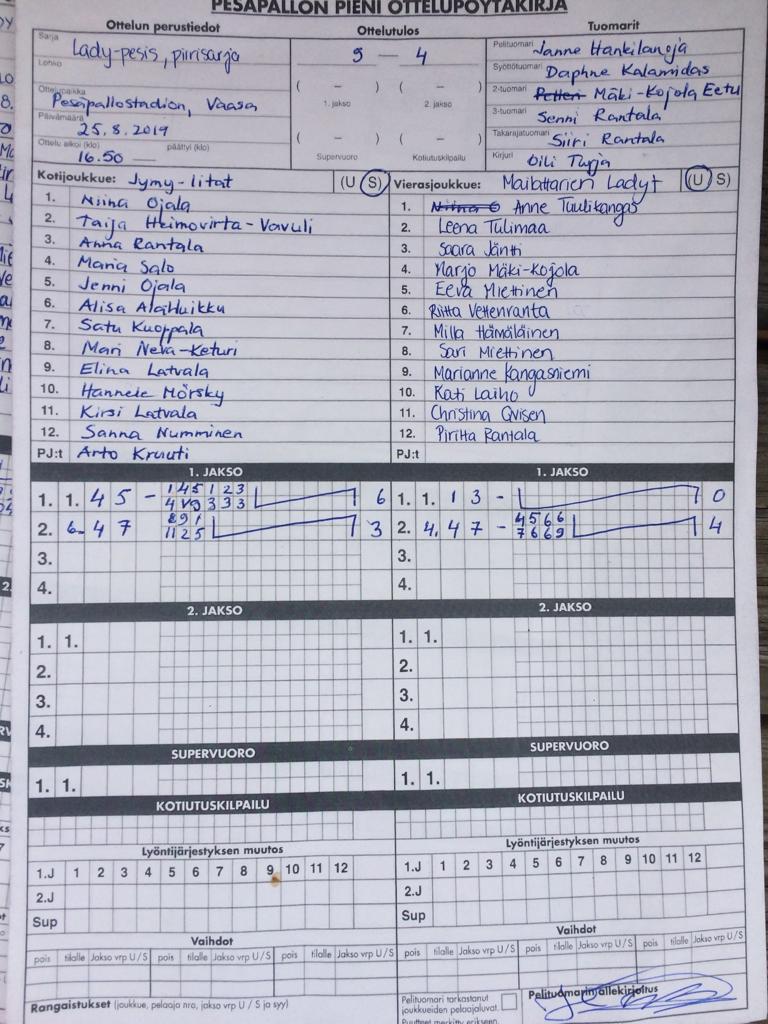 PESÄPALLON PIENI OTTELUPÖYTÄKIRJA
Ottelun perustiedot
Sarja Lady-pesis, piirisarja
Lohko
Ottelupaikka
Pesäpallostadion, Vaasa
Päivämäärä 25.8.2019
Ottelu alkoi (klo) päättyi (klo)
16.50 —
Ottelutulos
9 — 4
( – ) ( – )
1. jakso 2. jakso
( – ) ( – )
Supervuoro Kotiutuskilpailu
Tuomarit
Pelituomari Janne Hankilanoja
Syöttötuomari Daphne Kalamidas
2-tuomari Petteri Mäki-Kojola Eetu
3-tuomari Senni Rantala
Takarajatuomari Siiri Rantala
Kirjuri Oili Turja
Kotijoukkue: Jymy-litat (U S)
1. Niina Ojala
2. Taija Heimovirta-Vavuli
3. Anna Rantala
4. Maria Salo
5. Jenni Ojala
6. Alisa Alahuikku
7. Satu Kuoppala
8. Mari Neva-Keturi
9. Elina Latvala
10. Hannele Mörsky
11. Kirsi Latvala
12. Sanna Numminen
PJ:t Arto Kruuti
Vierasjoukkue: Maibattarien Ladyt (U S)
1. Anne Tuulikangas
2. Leena Tulimaa
3. Saara Jäntti
4. Marjo Mäki-Kojola
5. Eeva Miettinen
6. Riitta Vettenranta
7. Milla Hämäläinen
8. Sari Miettinen
9. Marianne Kangasniemi
10. Kati Laiho
11. Christina Qvisen
12. Piritta Rantala
PJ:t
1. JAKSO
1. 1. 4 5 – 1 4 5 1 2 3 6
4 3 3 3
2. 6. 4 7 8 9 1 3
11 2 5
3.
4.
1. JAKSO
1. 1. 1 3 – 0
2. 4. 4 7 – 4 5 6 6 4
7 6 6 9
3.
4.
2. JAKSO
1. 1.
2.
3.
4.
2. JAKSO
1. 1.
2.
3.
4.
SUPERVUORO
1. 1.
SUPERVUORO
1. 1.
KOTIUTUSKILPAILU
KOTIUTUSKILPAILU
Lyöntijärjestyksen muutos
1.J 1 2 3 4 5 6 7 8 9 10 11 12
2.J
Sup
Lyöntijärjestyksen muutos
1.J 1 2 3 4 5 6 7 8 9 10 11 12
2.J
Sup
Vaihdot
pois tilalle Jakso vrp U/S pois tilalle Jakso vrp U/S pois tilalle Jakso vrp U/S
Vaihdot
pois tilalle Jakso vrp U/S pois tilalle Jakso vrp U/S pois tilalle Jakso vrp U/S
Rangaistukset (joukkue, pelaaja nro, jakso vrp U / S ja syy)
Pelituomari tarkastanut
joukkueiden pelaajaluvat.
Puutteet merkitty erikseen.
Pelituomarin allekirjoitus